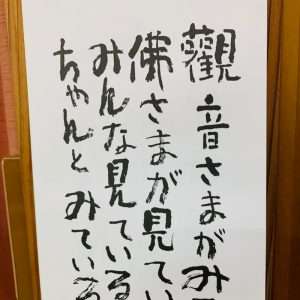 觀音さまがみて
佛さまが見てい
みんな見ている
ちゃんとみている